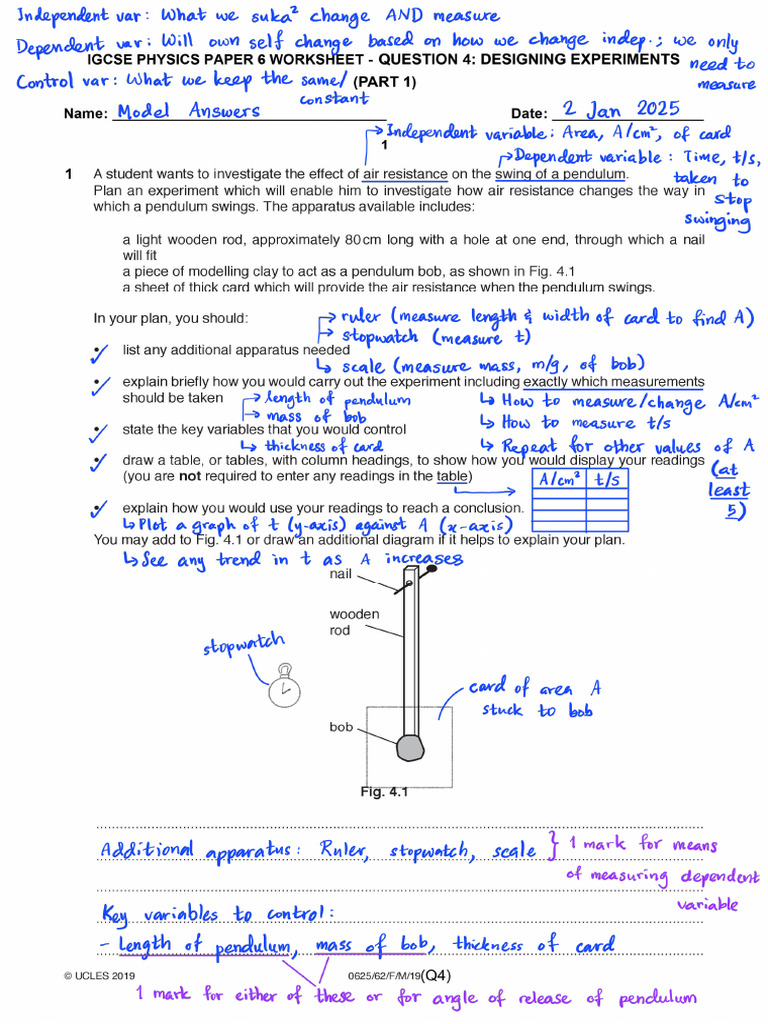 Independent var: What we suka² change AND measure
Dependent var: Will own self change based on how we change indep.; we only need to measure
IGCSE PHYSICS PAPER 6 WORKSHEET - QUESTION 4: DESIGNING EXPERIMENTS
(PART 1)
Control var: What we keep the same/constant
Name: Model Answers
Date: 2 Jan 2025
Independent variable: Area, A/cm², of card
1
Dependent variable: Time, t/s, taken to stop swinging
1 A student wants to investigate the effect of air resistance on the swing of a pendulum.
Plan an experiment which will enable him to investigate how air resistance changes the way in
which a pendulum swings. The apparatus available includes:
a light wooden rod, approximately 80 cm long with a hole at one end, through which a nail
will fit
a piece of modelling clay to act as a pendulum bob, as shown in Fig. 4.1
a sheet of thick card which will provide the air resistance when the pendulum swings.
In your plan, you should:
ruler (measure length & width of card to find A)
stopwatch (measure t)
• list any additional apparatus needed
scale (measure mass, m/g, of bob)
• explain briefly how you would carry out the experiment including exactly which measurements
should be taken
length of pendulum
mass of bob
How to measure/change A/cm²
How to measure t/s
• state the key variables that you would control
thickness of card
Repeat for other values of A (at least 5)
• draw a table, or tables, with column headings, to show how you would display your readings
(you are not required to enter any readings in the table)
A/cm² t/s
• explain how you would use your readings to reach a conclusion.
Plot a graph of t (y-axis) against A (x-axis)
You may add to Fig. 4.1 or draw an additional diagram if it helps to explain your plan.
See any trend in t as A increases
nail
wooden
rod
stopwatch
card of area A
stuck to bob
bob
Fig. 4.1
Additional apparatus: Ruler, stopwatch, scale } 1 mark for means
of measuring dependent
variable
Key variables to control:
- Length of pendulum, mass of bob, thickness of card
© UCLES 2019
0625/62/F/M/19(Q4)
1 mark for either of these or for angle of release of pendulum